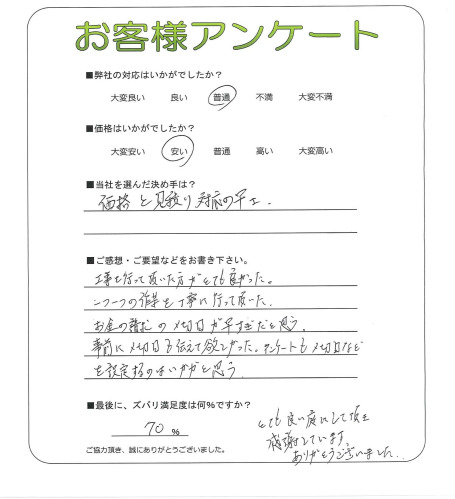 お客様アンケート
■弊社の対応はいかがでしたか？
大変良い 良い 普通 不満 大変不満
■価格はいかがでしたか？
大変安い 安い 普通 高い 大変高い
■当社を選んだ決め手は？
価格と見積り対応の早さ.
■ご感想・ご要望などをお書き下さい。
工事を行って頂いた方がとても良かった。
一つ一つの作業を丁寧に行って頂いた.
お金の振込の〆切日が早すぎだと思う.
事前に〆切日も伝えて欲しかった。アンケートも〆切日など
を設定するのはいかがと思う.
■最後に、ズバリ満足度は何%ですか？
70 %
とても良い庭にして頂き
感謝しています.
ありがとうございました.
ご協力頂き、誠にありがとうございました。